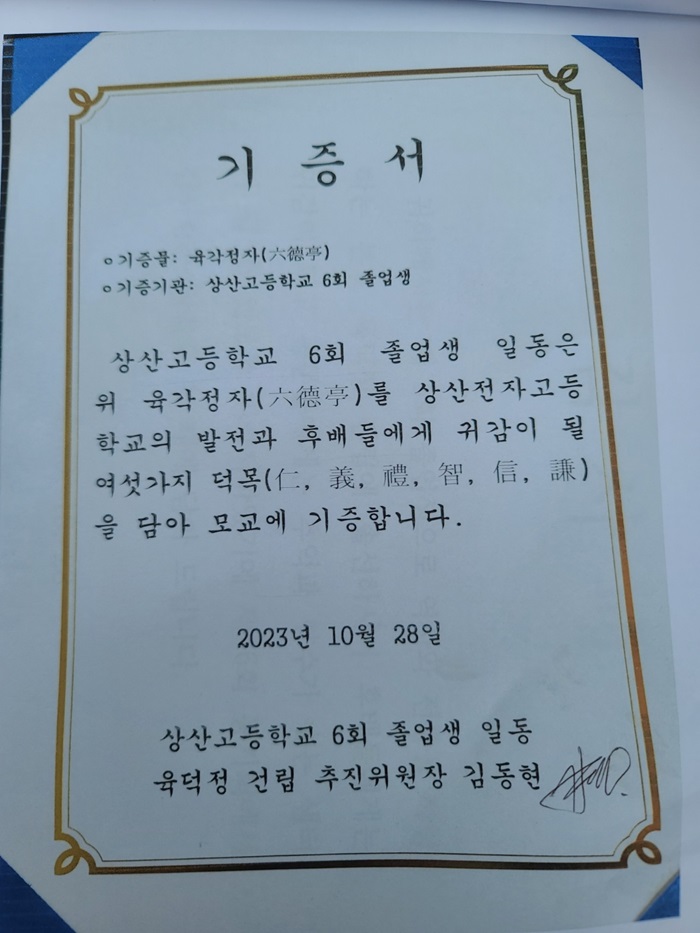 기 증 서
ㅇ기증물: 육각정자(六德亭)
ㅇ기증기관: 상산고등학교 6회 졸업생
상산고등학교 6회 졸업생 일동은
위 육각정자(六德亭)를 상산전자고등
학교의 발전과 후배들에게 귀감이 될
여섯가지 덕목(仁, 義, 禮, 智, 信, 謙)
을 담아 모교에 기증합니다.
2023년 10월 28일
상산고등학교 6회 졸업생 일동
육덕정 건립 추진위원장 김동현